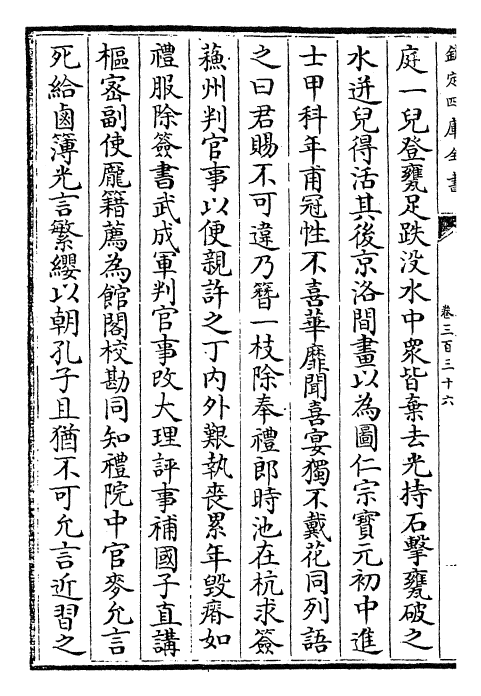 欽定四庫全書
卷三百三十六
庭一兒登甕足跌沒水中衆皆棄去光持石擊甕破之
水迸兒得活其後京洛間畫以為圖仁宗寶元初中進
士甲科年甫冠性不喜華靡聞喜宴獨不戴花同列語
之曰君賜不可違乃簪一枝除奉禮郎時池在杭求簽
蘓州判官事以便親許之丁內外艱執喪累年毁瘠如
禮服除簽書武成軍判官事改大理評事補國子直講
樞宻副使龎籍薦為館閣校勘同知禮院中官麥允言
死給鹵簿光言繁纓以朝孔子且猶不可允言近習之